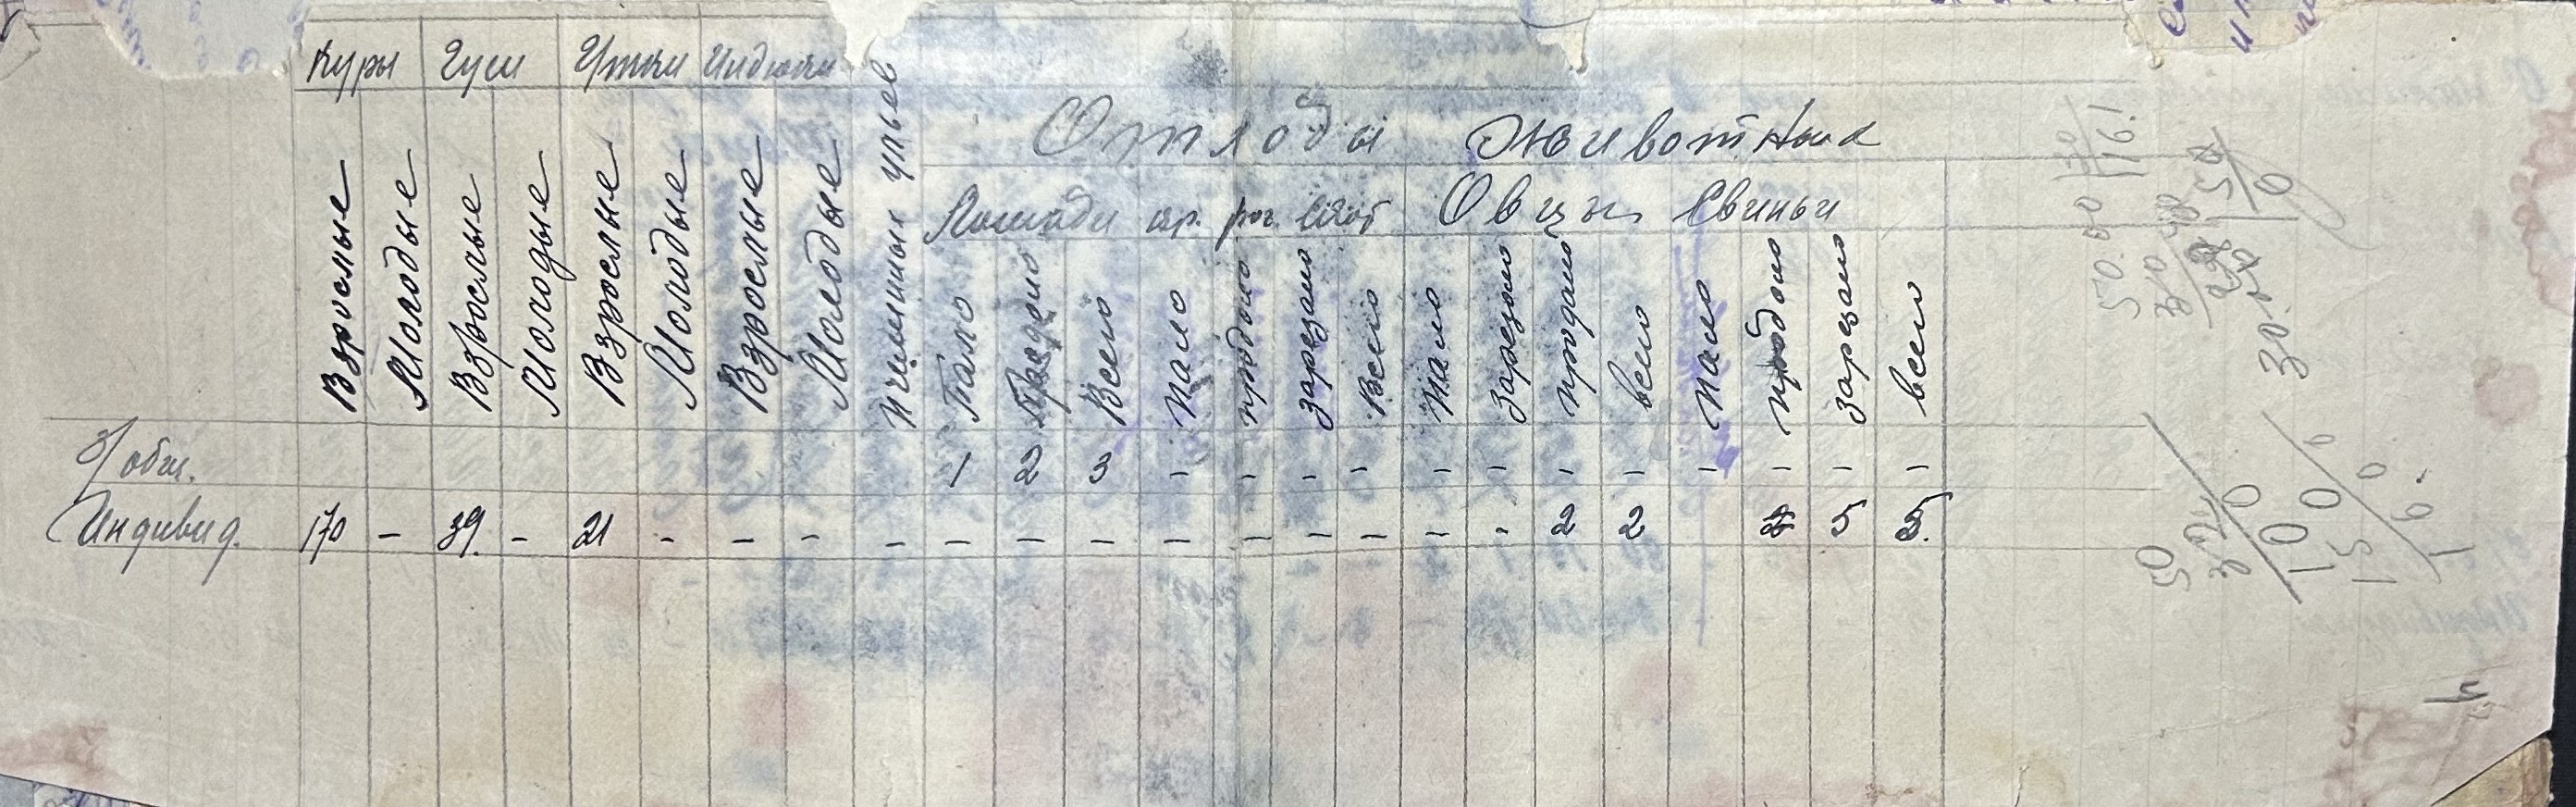 Куры Гуси Утки Индюки
Взрослые Молодые Взрослые Молодые Взрослые Молодые Взрослые Молодые Пчелиных ульев
Отходы животных
Лошади кр. рог. скот Овцы Свиньи
Пало Продано Всего пало продано зарезано всего пало зарезано продано всего пало продано зарезано всего
обш. 1 2 3 - - - - - - - - - - - -
Индивид. 170 - 39. - 21 - - - - - - - - - - - - - 2 2 5 5.
50.00 170
16.1
30.
50
100
150